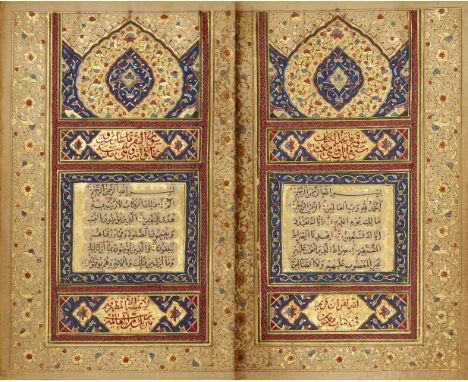 فاتحة الكتاب
بسم الله الرحمن الرحيم
الحمد لله رب العالمين
مالك يوم الدين اياك نعبد
و اياك نستعين اهدنا الصراط
المستقيم صراط الذين انعمت عليهم
غير المغضوب عليهم ولا الضالين
انه لقرآن كريم
في كتاب مكنون
سورة البقرة
بسم الله الرحمن الرحيم
الم ذلك الكتاب لا ريب فيه
هدى للمتقين الذين يؤمنون بالغيب
ويقيمون الصلوة ومما رزقناهم
ينفقون والذين يؤمنون بما انزل اليك
وما انزل من قبلك وبالاخرة هم يوقنون
لا يمسه الا المطهرون
تنزيل من رب العالمين